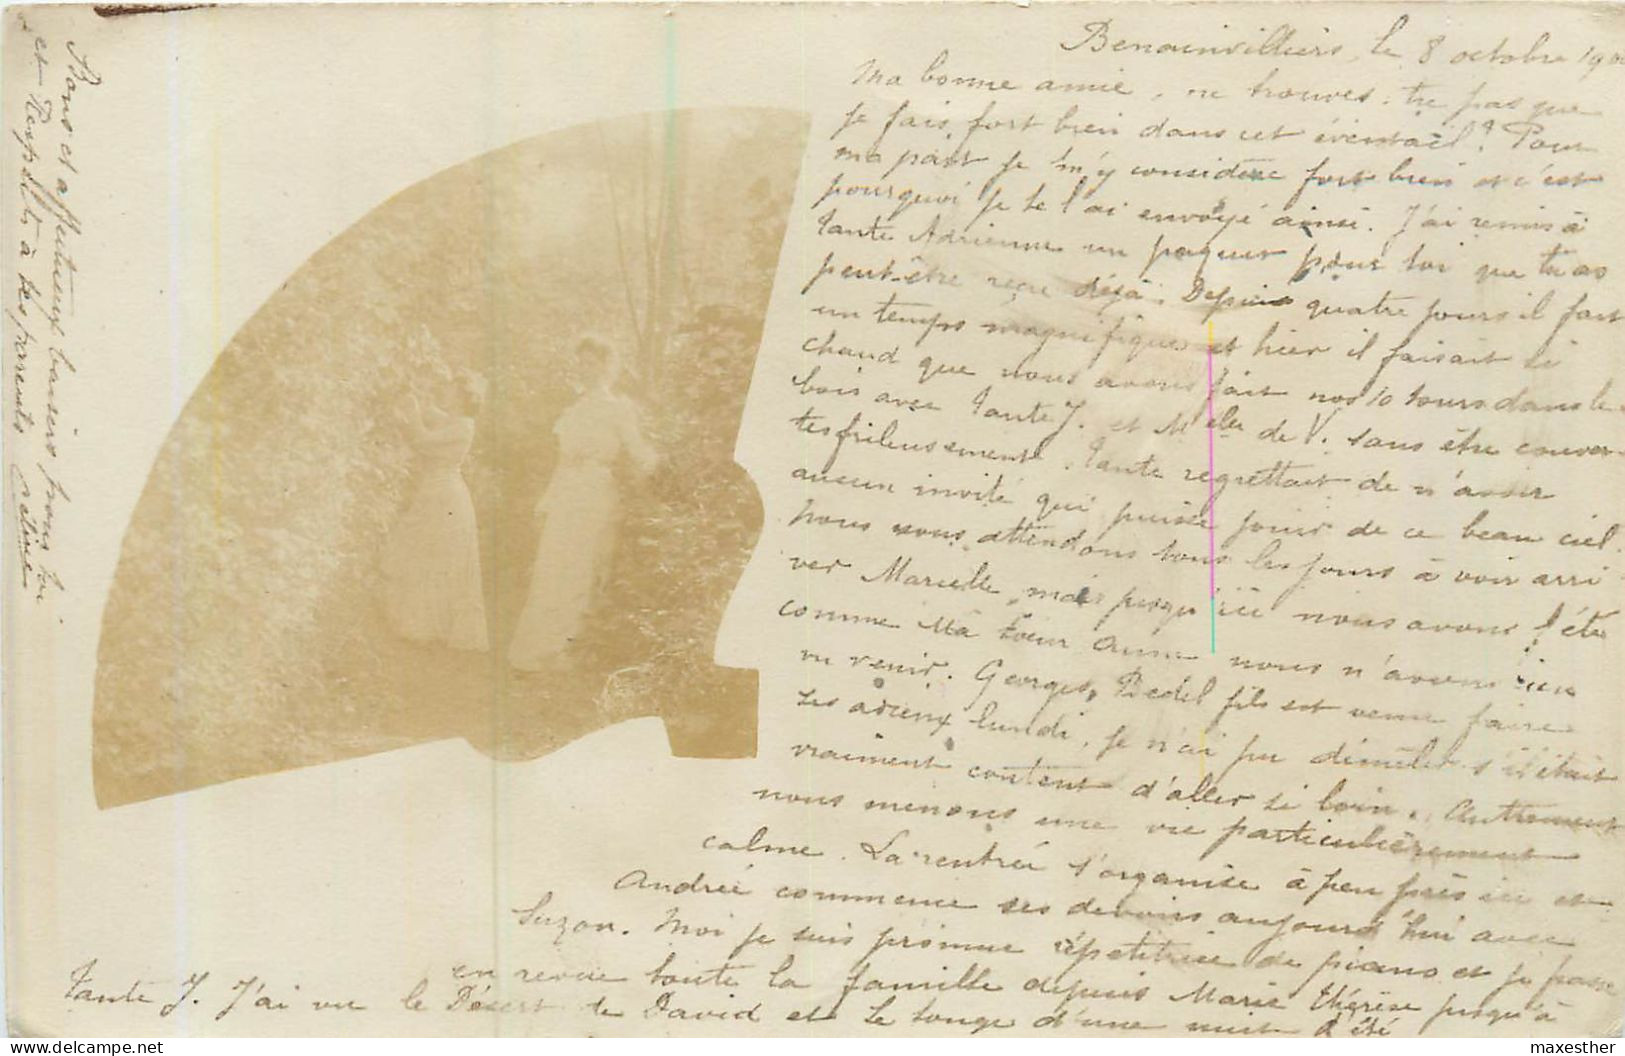 Benainvilliers, le 8 octobre 19
Ma bonne amie, ne trouves-tu pas que
je fais fort bien dans cet éventail? Pour
ma part je m'y considère fort bien et c'est
pourquoi je te l'ai envoyé ainsi. J'ai remis à
Tante Adrienne un paquet pour toi que tu as
peut-être reçu déjà. Depuis quatre jours il fait
un temps magnifique et hier il faisait si
chaud que nous avons fait nos 10 tours dans le
bois avec Tante J. et Melles de V. sans être couver-
tes frileusement. Tante regrettait de n'avoir
aucun invité qui puisse jouir de ce beau ciel.
Nous nous attendons tous les jours à voir arri
ver Marcelle, mais jusqu'ici nous avons été
comme Ma Soeur Anne nous n'avons rien
vu venir. Georges Bedel fils est venu faire
ses adieux lundi, je n'ai pu démêler s'il était
vraiment content d'aller si loin. Autrement
nous menons une vie particulièrement
calme. La rentrée s'organise à peu près ici et
Andrée commence ses devoirs aujourd'hui avec
Suzon. Moi je suis promue répétitrice de piano et je passe
en revue toute la famille depuis Marie Thérèse jusqu'à
Tante J. J'ai vu le Désert de David et le Songe d'une nuit d'été
Bons et affectueux baisers pour toi
et Respects à tes parents Céline
maxesther